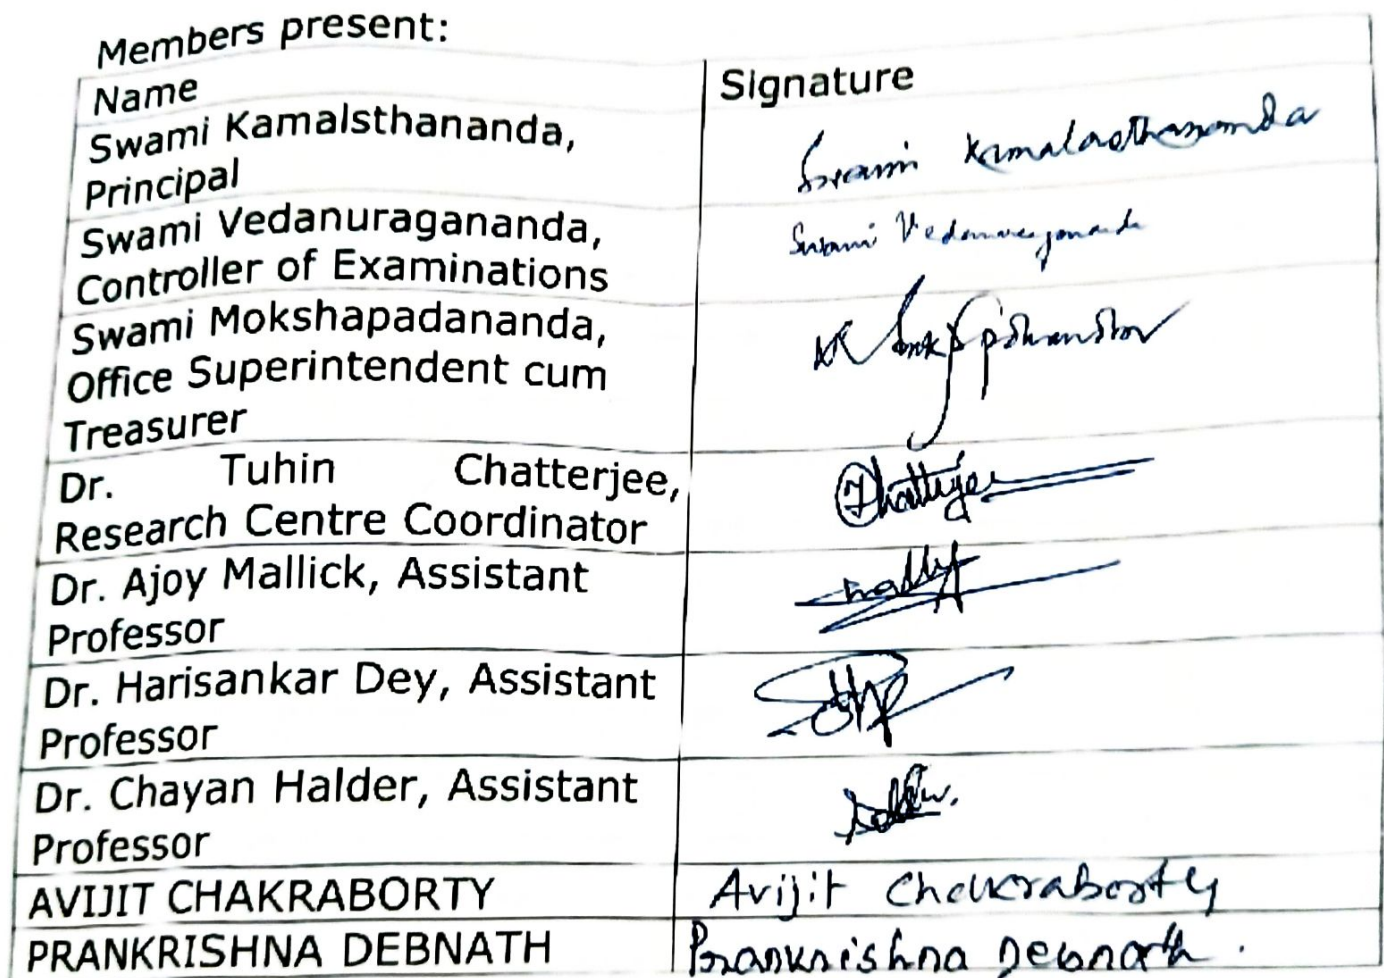 Members present:
Name Signature
Swami Kamalsthananda, Swami Kamalasthananda
Principal
Swami Vedanuragananda, Swami Vedanuragananda
Controller of Examinations
Swami Mokshapadananda,
Office Superintendent cum
Treasurer
Dr. Tuhin Chatterjee, TChatterjee
Research Centre Coordinator
Dr. Ajoy Mallick, Assistant
Professor
Dr. Harisankar Dey, Assistant
Professor
Dr. Chayan Halder, Assistant
Professor
AVIJIT CHAKRABORTY Avijit Chakraborty
PRANKRISHNA DEBNATH Prankrishna Debnath.